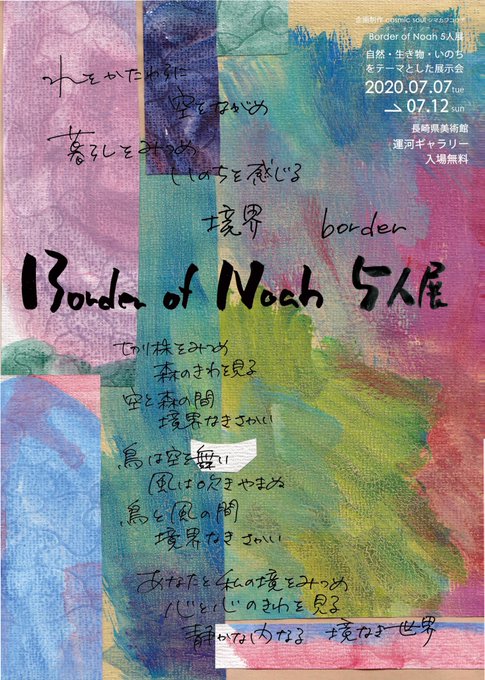 企画制作 cosmic soul シマカワコウヂ
Border of Noah 5人展
自然・生き物・いのち
をテーマとした展示会
2020.07.07 tue
→ 07.12 sun
長崎県美術館
運河ギャラリー
入場無料
かたわらに
空をながめ
暮らしをみつめ
いのちを感じる
境界 border
Border of Noah 5人展
切り株をみつめ
森のきわを見る
空と森の間
境界なきさかい
鳥は空を舞い
風は吹きやまぬ
鳥と風の間
境界なきさかい
あなたと私の境をみつめ
心と心のきわを見る
静かな内なる 境なき世界